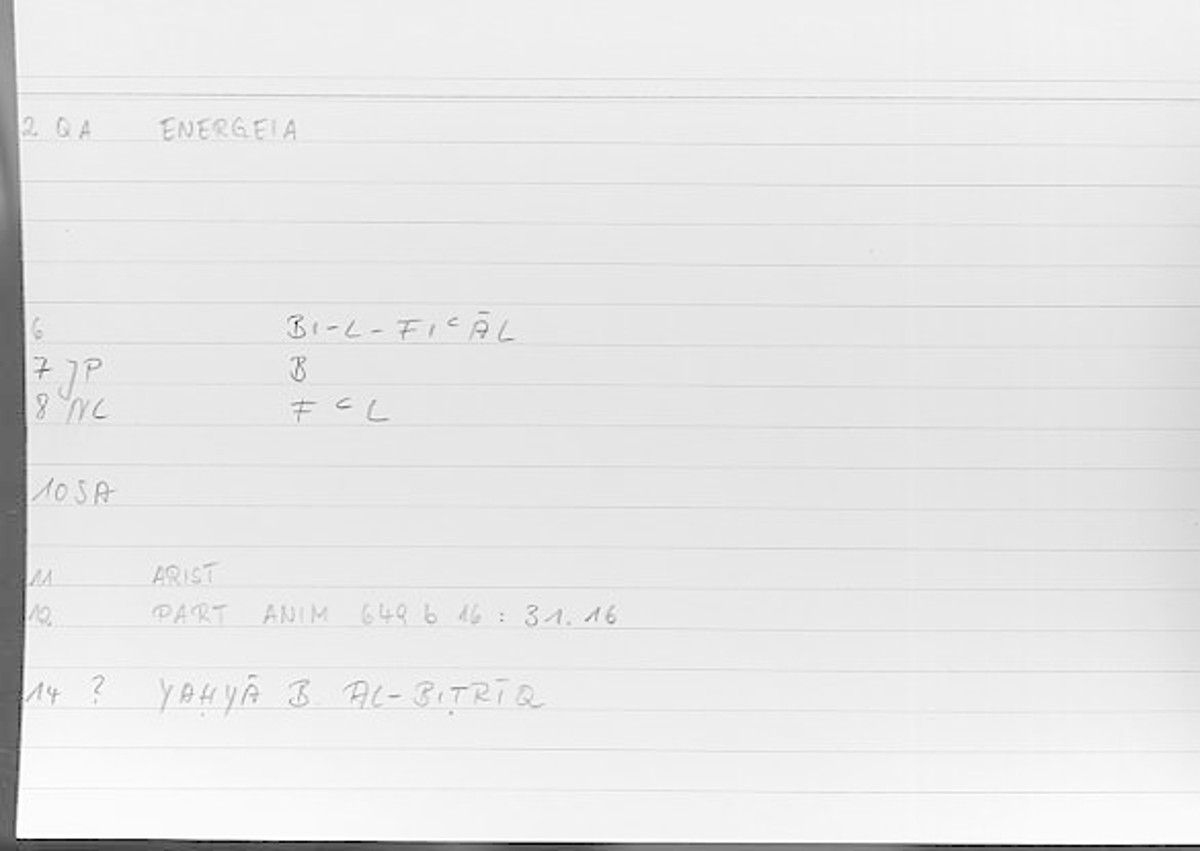 2 QA ENERGEIA
6 BI-L-FIʿĀL
7 JP B
8 NC F ʿ L
10 SA
11 ARIST
12 PART ANIM 649 b 16 : 31.16
14 ? YAḤYĀ B. AL-BIṬRĪQ